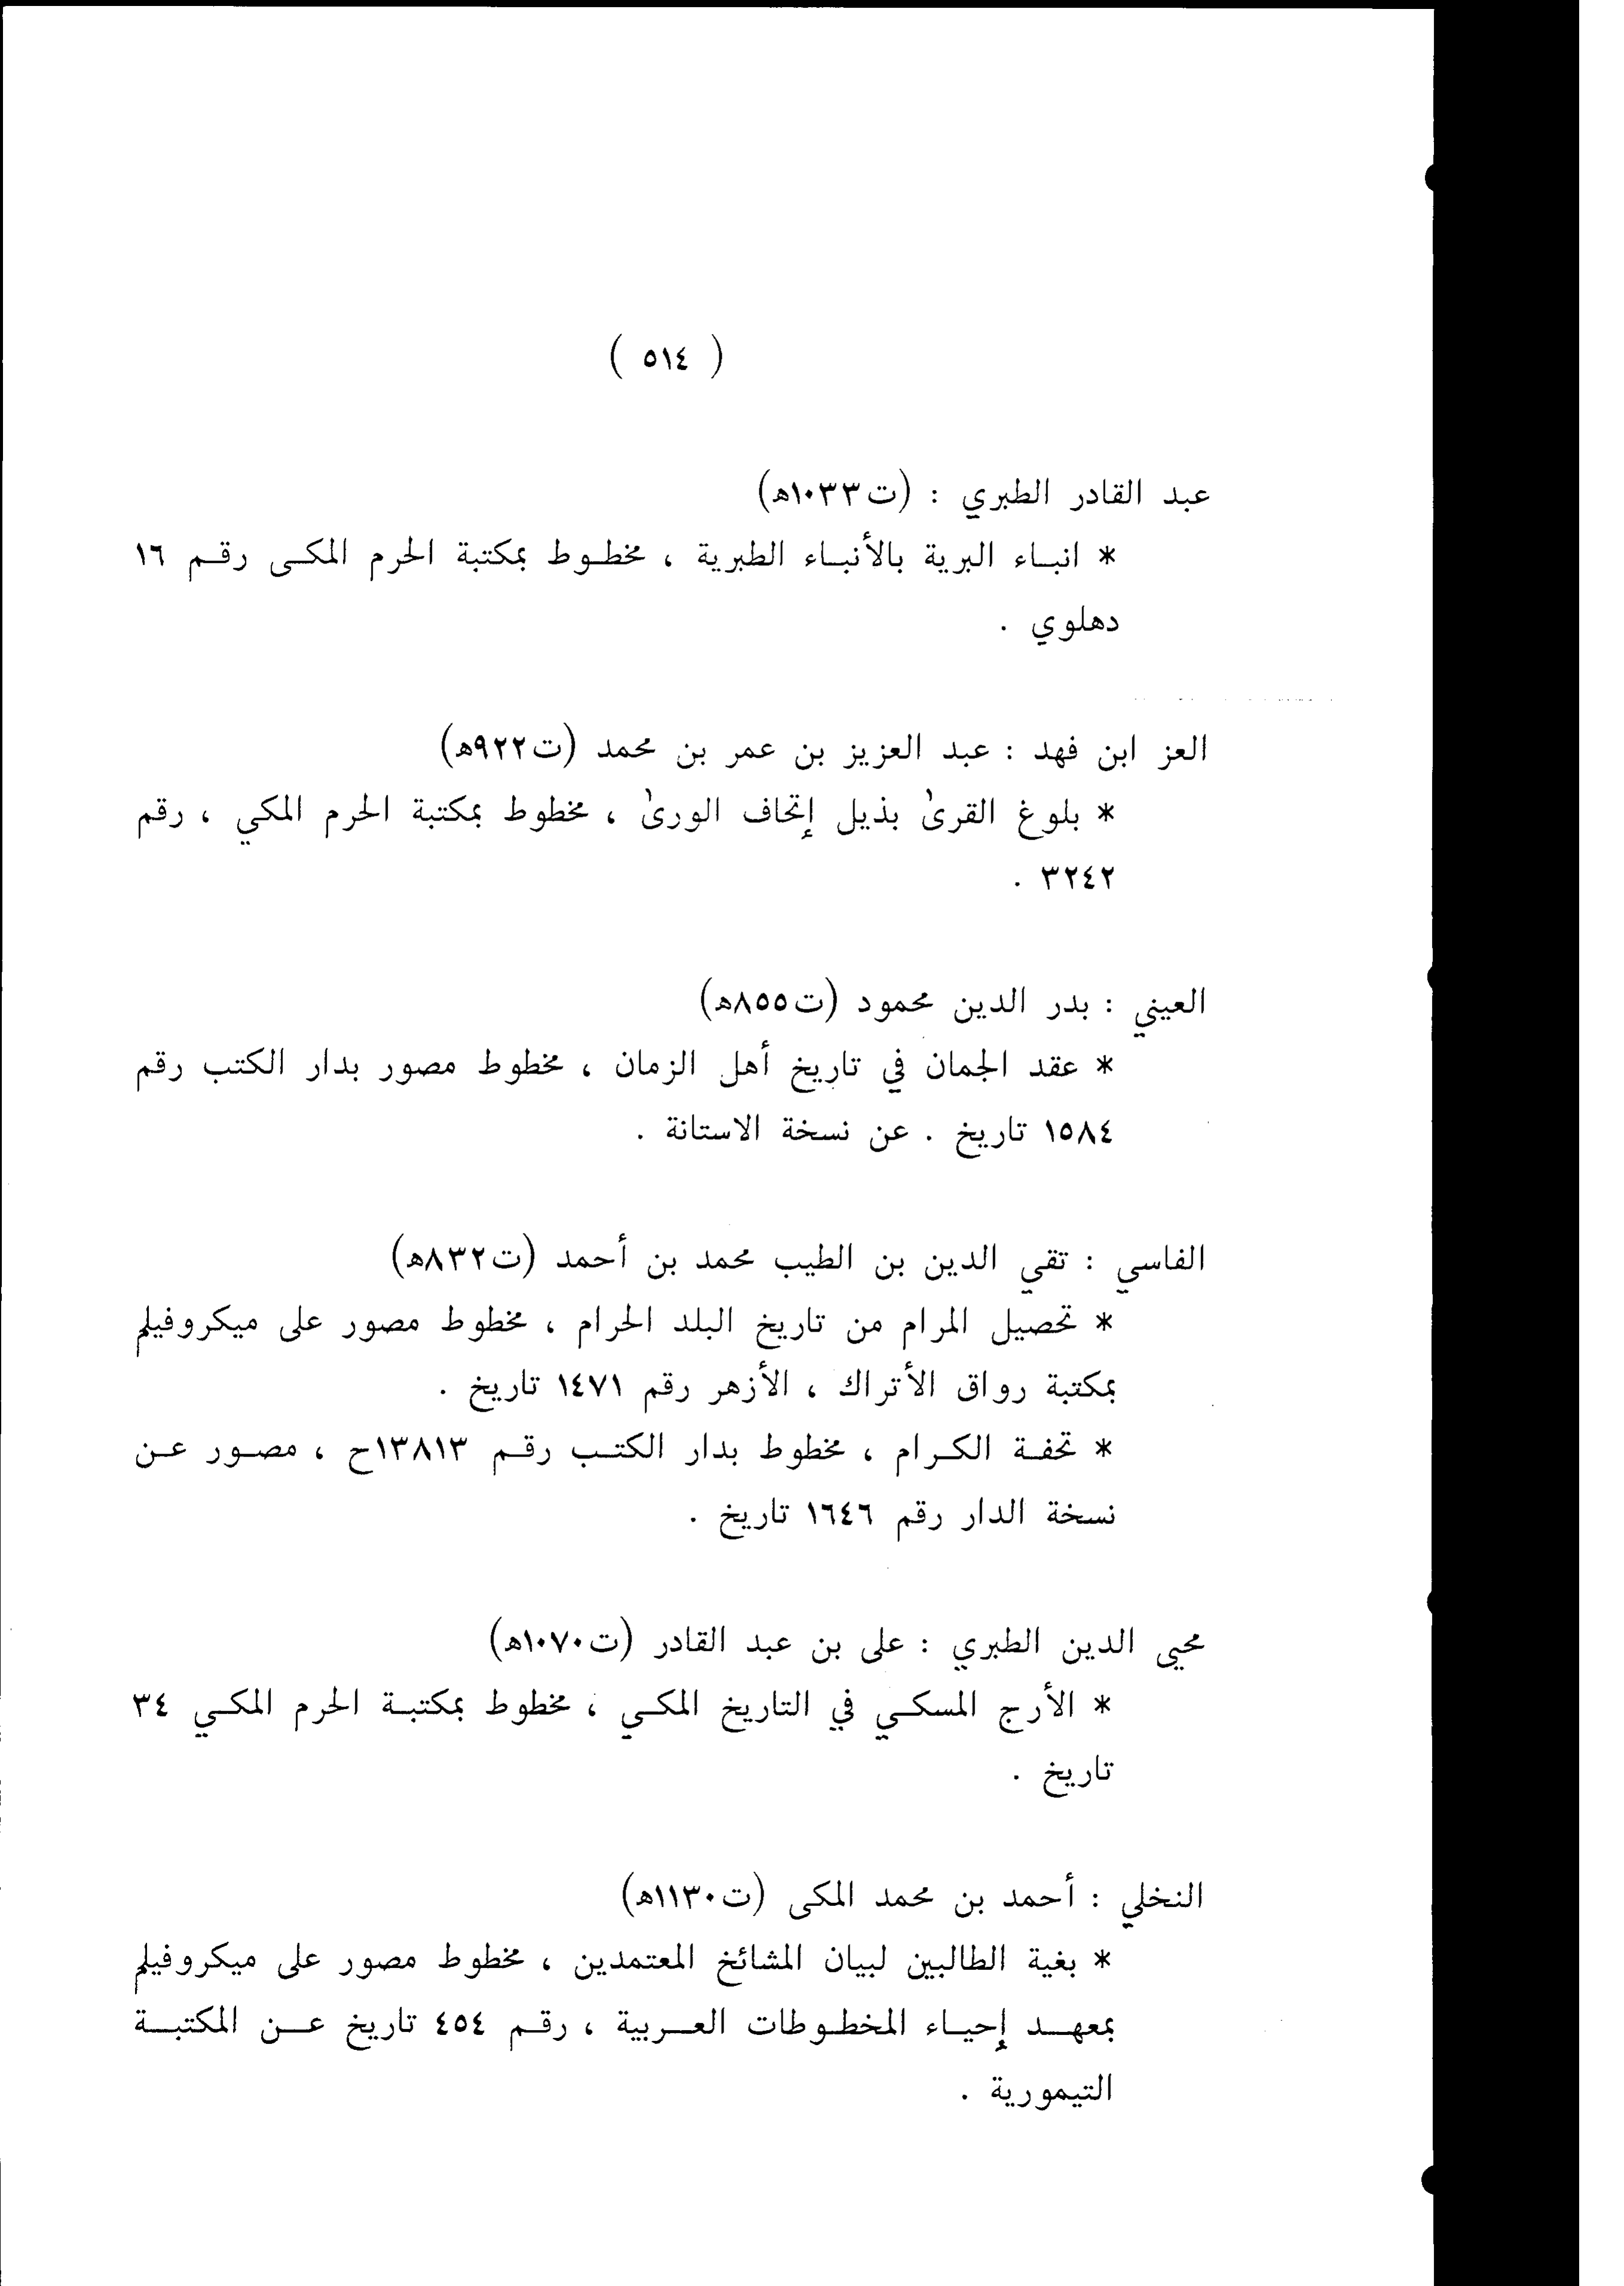 ( ٥١٤ )
عبد القادر الطبري : (ت١٠٣٣هـ)
* انباء البرية بالأنباء الطبرية ، مخطوط بمكتبة الحرم المكى رقم ١٦
دهلوي .
العز ابن فهد : عبد العزيز بن عمر بن محمد (ت٩٢٢هـ)
* بلوغ القرىٰ بذيل إتحاف الورىٰ ، مخطوط بمكتبة الحرم المكي ، رقم
٣٢٤٢ .
العيني : بدر الدين محمود (ت٨٥٥هـ)
* عقد الجمان في تاريخ أهل الزمان ، مخطوط مصور بدار الكتب رقم
١٥٨٤ تاريخ . عن نسخة الاستانة .
الفاسي : تقي الدين بن الطيب محمد بن أحمد (ت٨٣٢هـ)
* تحصيل المرام من تاريخ البلد الحرام ، مخطوط مصور على ميكروفيلم
بمكتبة رواق الأتراك ، الأزهر رقم ١٤٧١ تاريخ .
* تحفة الكرام ، مخطوط بدار الكتب رقم ١٣٨١٣ح ، مصور عن
نسخة الدار رقم ١٦٤٦ تاريخ .
محيى الدين الطبري : على بن عبد القادر (ت١٠٧٠هـ)
* الأرج المسكي في التاريخ المكي ، مخطوط بمكتبة الحرم المكي ٣٤
تاريخ .
النخلي : أحمد بن محمد المكى (ت١١٣٠هـ)
* بغية الطالبين لبيان المشائخ المعتمدين ، مخطوط مصور على ميكروفيلم
بمعهد إحياء المخطوطات العربية ، رقم ٤٥٤ تاريخ عن المكتبة
التيمورية .